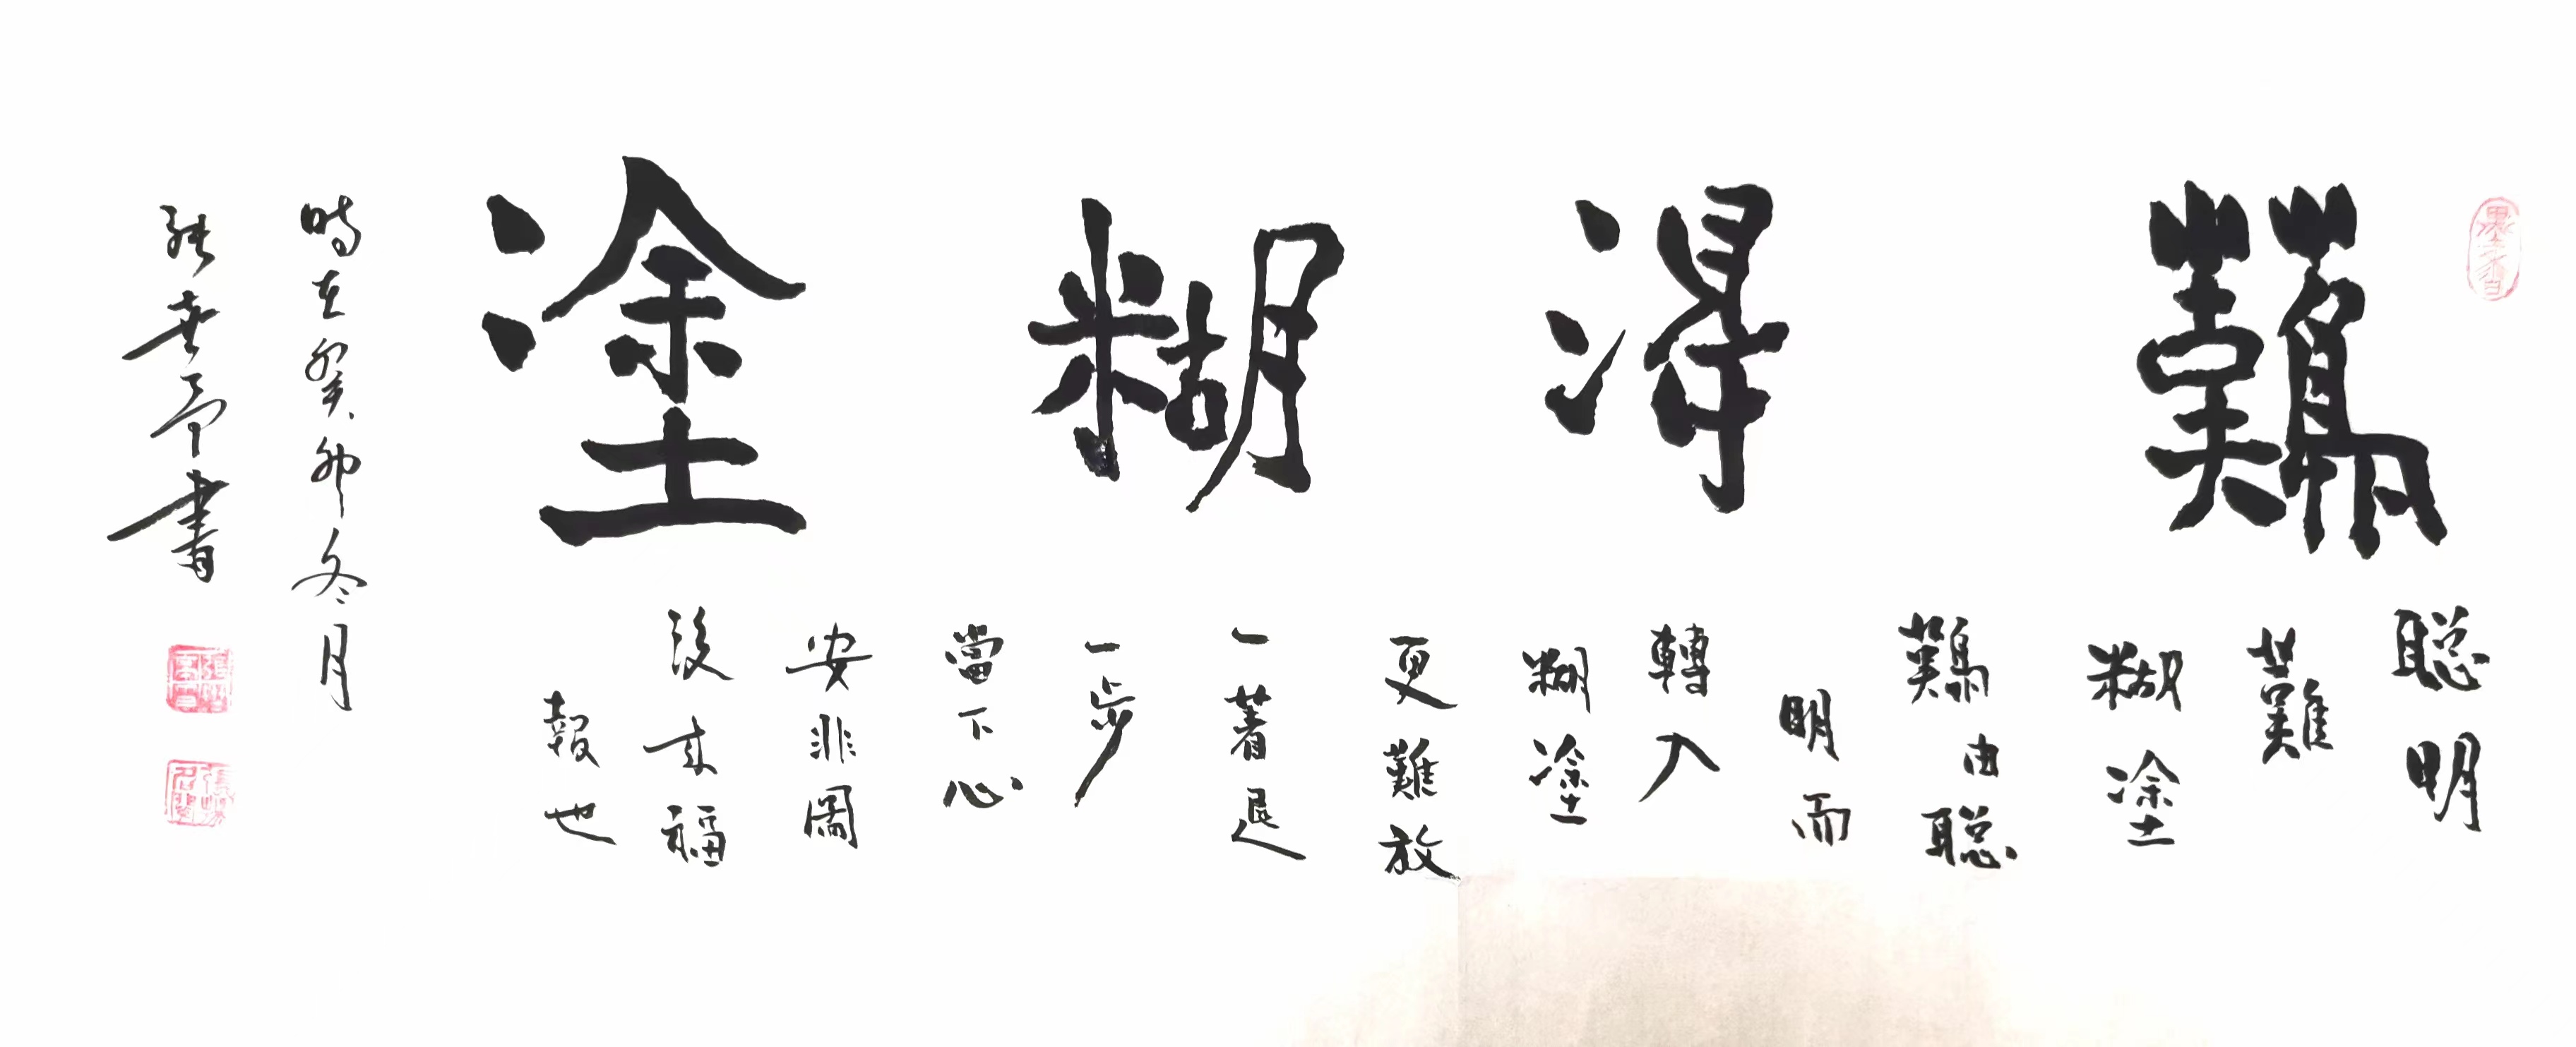 難得糊塗
聰明
難
糊塗
難由聰
明而
轉入
糊塗
更難放
一著退
一步
當下心
安非圖
後來福
報也
時在癸卯冬月
書
墨香